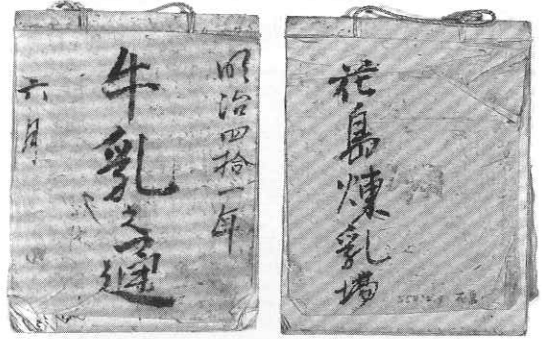 明治四拾一年
牛乳之通
六月
花島煉乳場